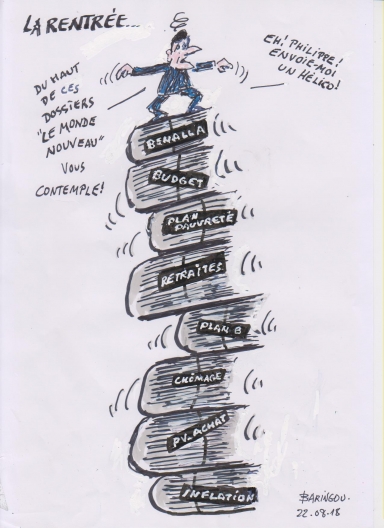 LA RENTRÉE...
EH! PHILIPPE!
ENVOIE-MOI
UN HÉLICO!
DU HAUT
DE CES
DOSSIERS
"LE MONDE
NOUVEAU"
VOUS
CONTEMPLE!
BENALLA
BUDGET
PLAN
PAUVRETÉ
RETRAITES
PLAN B
CHÔMAGE
PV. ACHAT
INFLATION
BARINGOU.
22.08.18